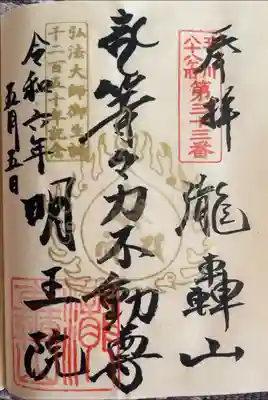 奉拝
玉川八十八ヶ所第三十三番
瀧轟山
等々力不動尊
弘法大師御生誕
千二百五十年記念
令和六年
五月五日
明王院